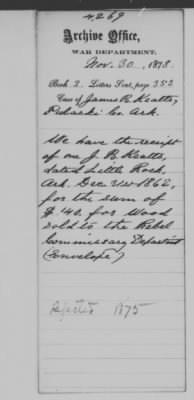 4269
Archive Office,
WAR DEPARTMENT,
Nov. 30, 1878.
Book 3 Letters Sent, page 353
Case of James B. Keatts,
Pulaski Co. Ark.
We have the receipt
of one J. B. Keatts,
dated Little Rock,
Ark. Dec 31st 1862,
for the sum of
$40. for Wood
sold to the Rebel
Commissary Department
(Envelope)
Rejected 1875